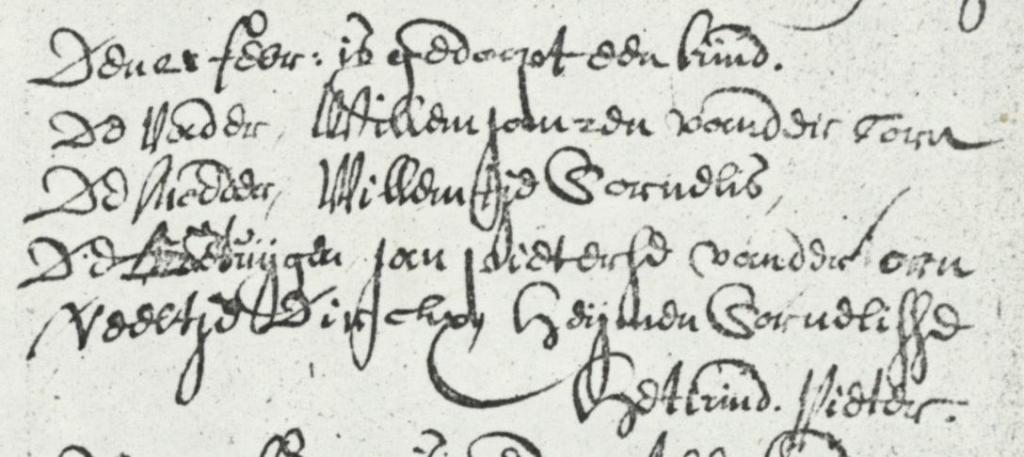 Den 21 febr: is gedoopt een kind.
De Vader, Willem Jansen vander Torn
De Moeder, Willemtje Cornelis,
De Getuijgen Jan pieterse vander Torn
Neeltje Dircksz, Heijmen Cornelisse
Het kind. Pieter.